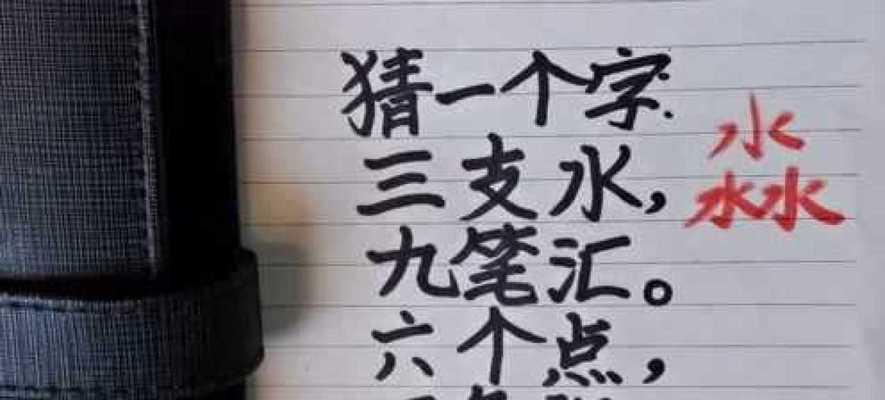 猜一个字:
三支水,
九笔汇。
六个点,
水
水水